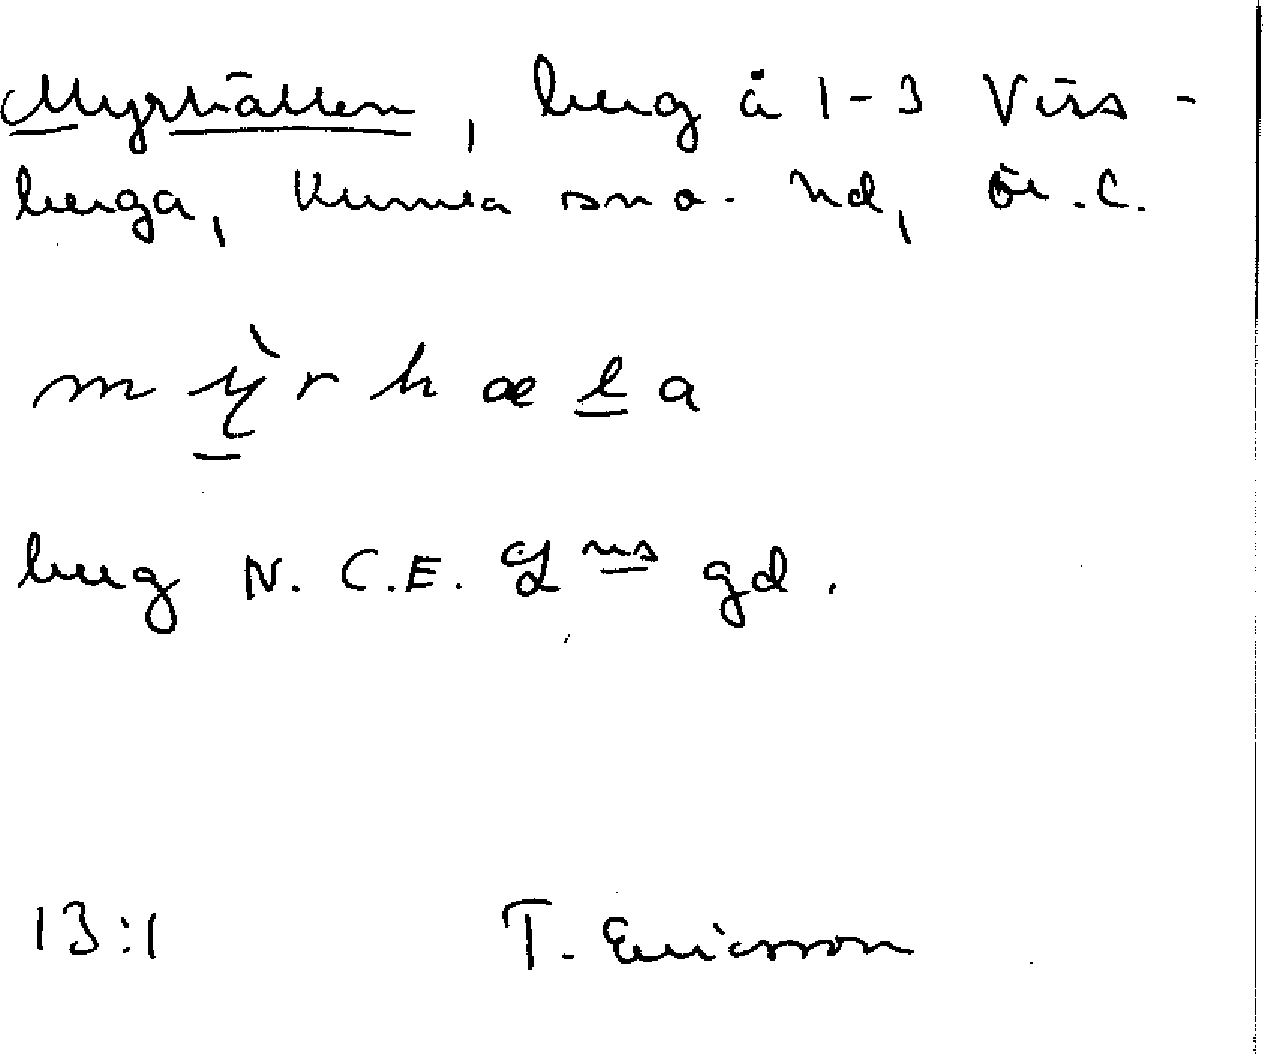 Myrhällen, berg å 1-3 Viās-
berga, Kumla sn o. hd, Ör. L.
mỳrhæla
berg N. C. E. Lns gd.
13:1 T. Ericsson